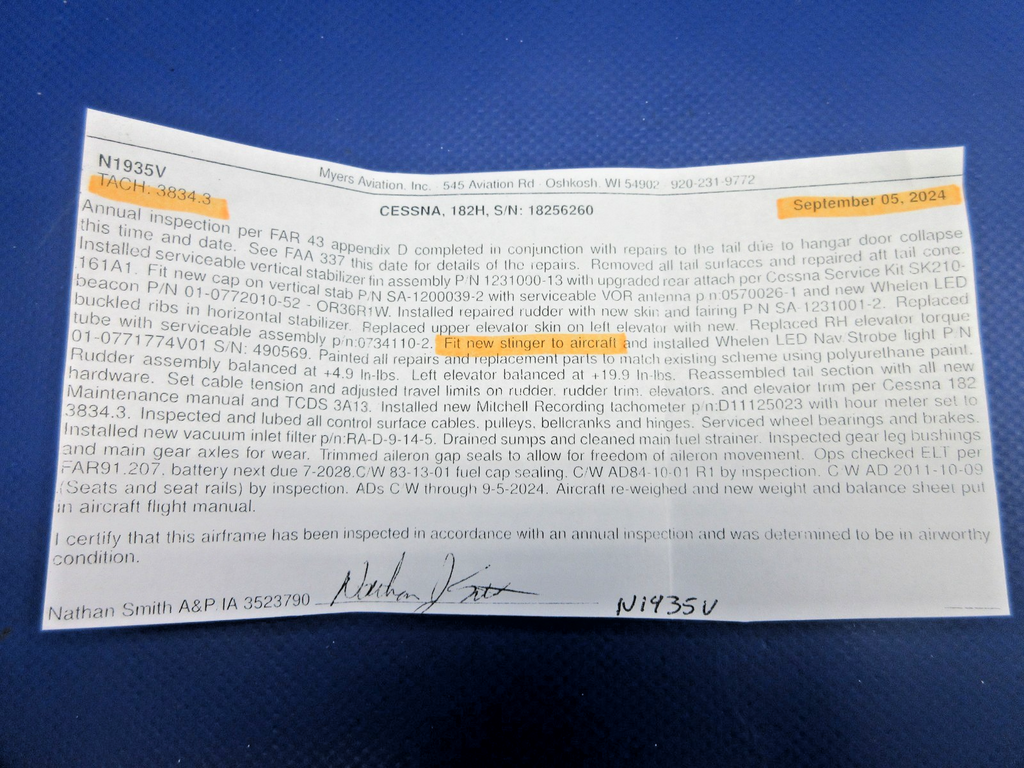 N1935V
Myers Aviation, Inc. 545 Aviation Rd - Oshkosh, WI 54902 - 920-231-9772
TACH: 3834.3
CESSNA, 182H, S/N: 18256260
September 05, 2024
Annual inspection per FAR 43 appendix D completed in conjunction with repairs to the tail due to hangar door collapse
this time and date. See FAA 337 this date for details of the repairs. Removed all tail surfaces and repaired aft tail cone.
Installed serviceable vertical stabilizer fin assembly P/N 1231000-13 with upgraded rear attach per Cessna Service Kit SK210-
161A1. Fit new cap on vertical stab P/N SA-1200039-2 with serviceable VOR antenna p n:0570026-1 and new Whelen LED
beacon P/N 01-0772010-52 - OR36R1W. Installed repaired rudder with new skin and fairing P N SA-1231001-2. Replaced
buckled ribs in horizontal stabilizer. Replaced upper elevator skin on left elevator with new. Replaced RH elevator torque
tube with serviceable assembly p/n:0734110-2. Fit new stinger to aircraft and installed Whelen LED Nav Strobe light P N
01-0771774V01 S/N: 490569. Painted all repairs and replacement parts to match existing scheme using polyurethane paint.
Rudder assembly balanced at +4.9 In-lbs. Left elevator balanced at +19.9 In-lbs. Reassembled tail section with all new
hardware. Set cable tension and adjusted travel limits on rudder, rudder trim, elevators, and elevator trim per Cessna 182
Maintenance manual and TCDS 3A13. Installed new Mitchell Recording tachometer p/n:D11125023 with hour meter set to
3834.3. Inspected and lubed all control surface cables, pulleys, bellcranks and hinges. Serviced wheel bearings and brakes.
Installed new vacuum inlet filter p/n:RA-D-9-14-5. Drained sumps and cleaned main fuel strainer. Inspected gear leg bushings
and main gear axles for wear. Trimmed aileron gap seals to allow for freedom of aileron movement. Ops checked ELT per
FAR91.207, battery next due 7-2028. C/W 83-13-01 fuel cap sealing. C/W AD84-10-01 R1 by inspection. C W AD 2011-10-09
(Seats and seat rails) by inspection. ADs C/W through 9-5-2024. Aircraft re-weighed and new weight and balance sheet put
in aircraft flight manual.
I certify that this airframe has been inspected in accordance with an annual inspection and was determined to be in airworthy
condition.
Nathan Smith A&P, IA 3523790 Nathan Smith N1935V